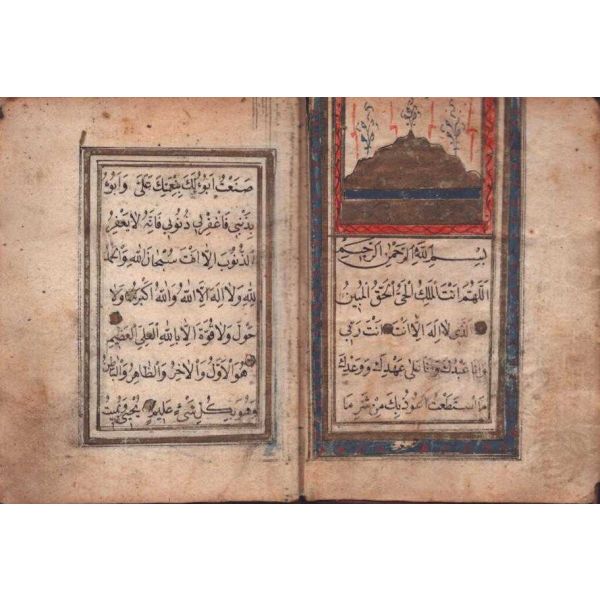 بِسْمِ اللهِ الرَّحْمنِ الرَّحِيمِ
اَللّهُمَّ اَنْتَ الْمَلِكُ الْحَىُّ الْحَقُّ الْمُبِينُ
الَّذِى لَا اِلهَ اِلَّا اَنْتَ اَنْتَ رَبِّى
وَاَنَا عَبْدُكَ وَاَنَا عَلى عَهْدِكَ وَوَعْدِكَ
مَا اسْتَطَعْتُ اَعُوذُ بِكَ مِنْ شَرِّ مَا
صَنَعْتُ اَبُوءُ لَكَ بِنِعْمَتِكَ عَلَىَّ وَاَبُوءُ
بِذَنْبِى فَاغْفِرْلِى ذُنُوبِى فَاِنَّهُ لَا يَغْفِرُ
الذُّنُوبَ اِلَّا اَنْتَ سُبْحَانَ اللهِ وَالْحَمْدُ
لِلّهِ وَلَا اِلهَ اِلَّا اللهُ وَاللهُ اَكْبَرُ وَلَا
حَوْلَ وَلَا قُوَّةَ اِلَّا بِاللهِ الْعَلِىِّ الْعَظِيمِ
هُوَ الْاَوَّلُ وَالْاخِرُ وَالظَّاهِرُ وَالْبَاطِنُ
وَهُوَ بِكُلِّ شَىْءٍ عَلِيمٌ يُحْيِى وَيُمِيتُ